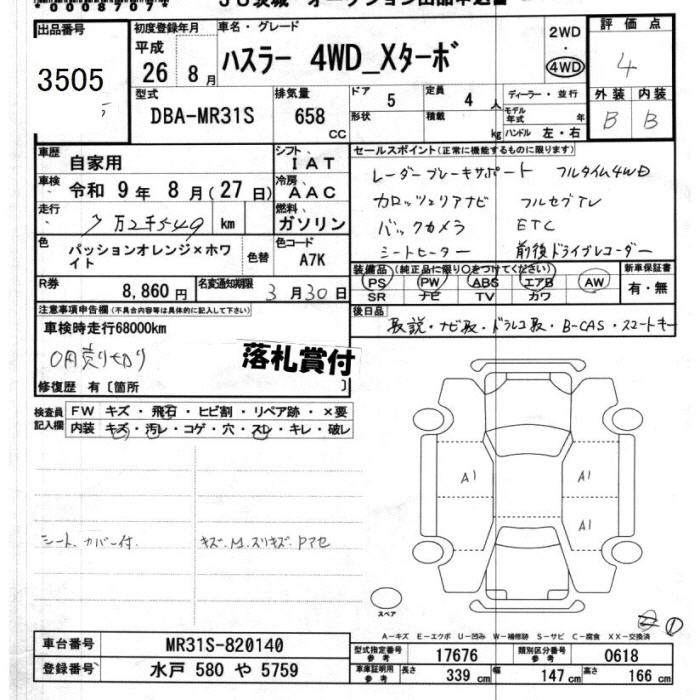 *0008707*
JU茨城 オークション出品申込書
出品番号 初度登録年月 車名・グレード 2WD・4WD 評価点
3505 平成 26 8月 ハスラー 4WD_Xターボ 4
型式 排気量 ドア 5 定員 4 人 ディーラー・並行 外装 内装
DBA-MR31S 658 CC 形状 積載 kg モデル年式 年 ハンドル 左・右 B B
車歴 自家用 シフト IAT セールスポイント(正常に機能するものに限ります)
車検 令和 9年 8月(27日) 冷房 AAC レーダーブレーキサポート フルタイム4WD
走行 7万2千549 km 燃料 ガソリン カロッツェリアナビ フルセグTV
色 パッションオレンジ×ホワイト 色替 色コード A7K バックカメラ ETC
シートヒーター 前後ドライブレコーダー
R券 8,860円 名変通知期限 3月30日 装備品(純正品に限り○をつけてください) 新車保証書
PS PW ABS エアB AW 有・無
SR ナビ TV カワ
注意事項申告欄(不具合内容等は具体的に記入して下さい) 後日品
車検時走行68000km 取説・ナビ取・ドラレコ取・B-CAS・スマートキー
0円売り切り 落札賞付
修復歴 有〔箇所 〕
検査員記入欄 FW キズ・飛石・ヒビ割・リペア跡・×要
内装 キズ・汚レ・コゲ・穴・スレ・キレ・破レ
A1 A1
A1
シートカバー付. キズ.M.スリキズ.Pアセ
スペア
②①
A-キズ E-エクボ U-凹み W-補修跡 S-サビ C-腐食 XX-交換済
車台番号 MR31S-820140 型式指定番号 参考 17676 類別区分番号 参考 0618
登録番号 水戸 580 や 5759 車庫証明用 参考 長さ 339 cm 幅 147 cm 高さ 166 cm